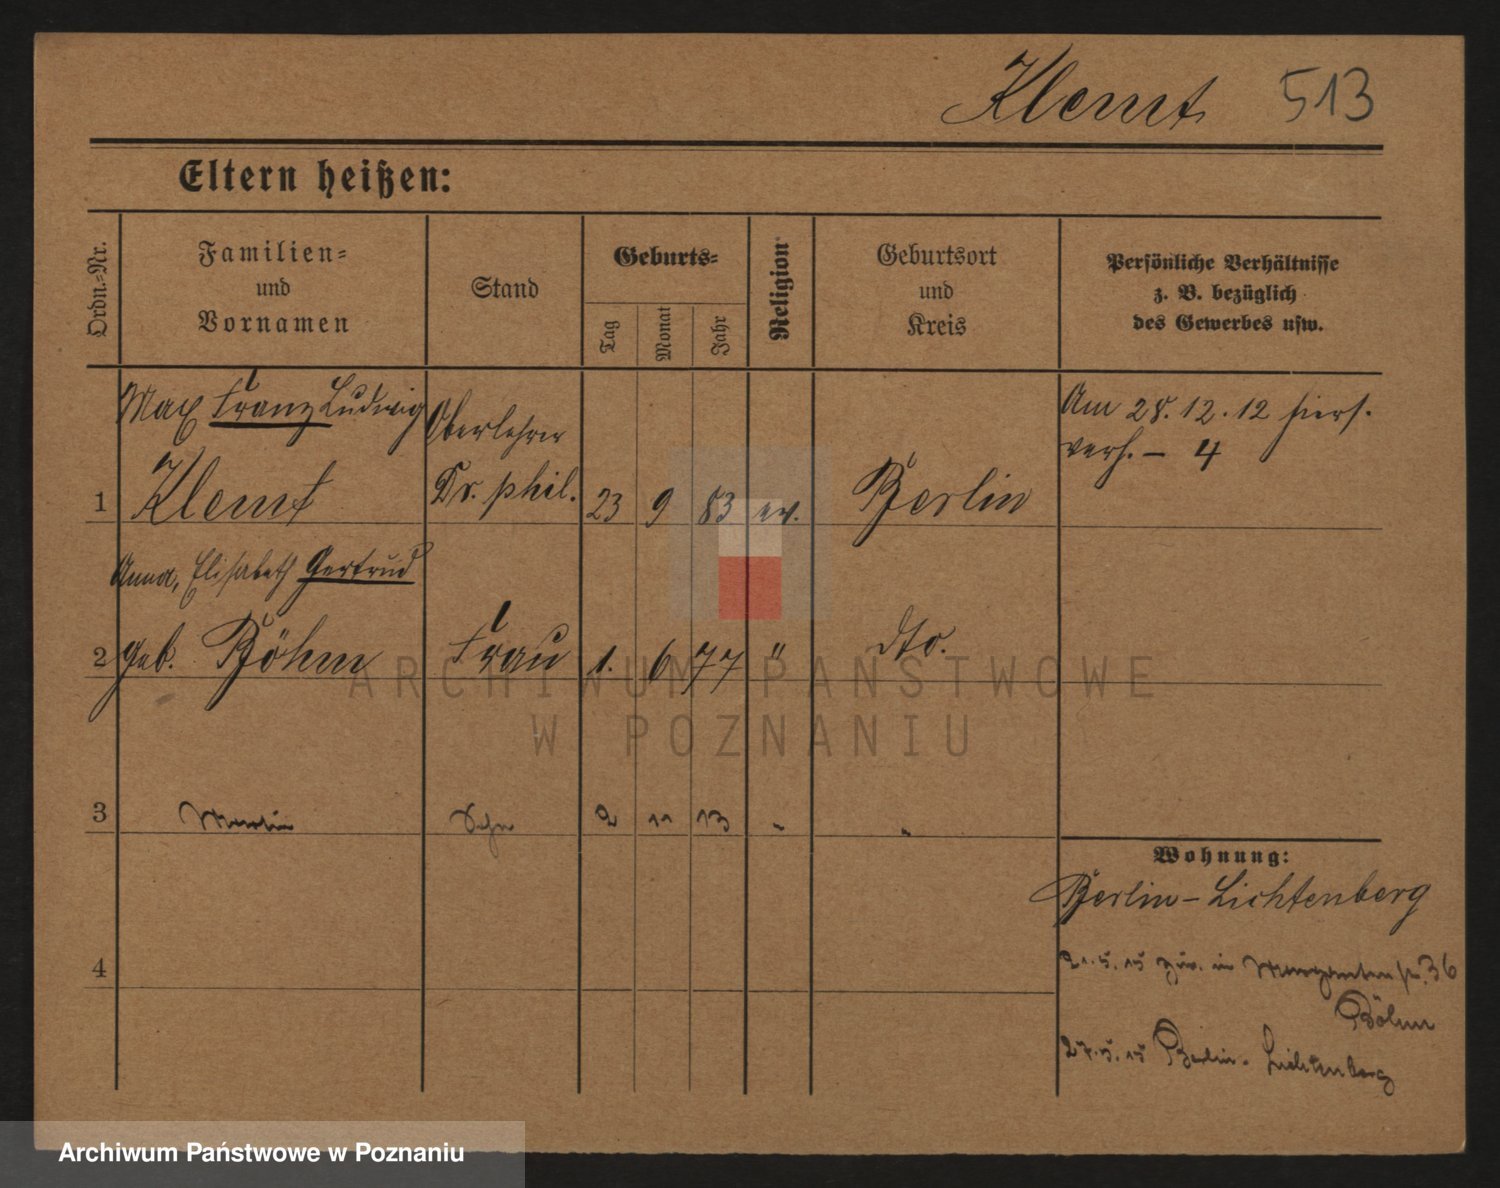 Klemt 513
Eltern heißen:
Ordn.-Nr.
Familien-
und
Vornamen
Stand
Geburts-
Tag
Monat
Jahr
Religion
Geburtsort
und
Kreis
Persönliche Verhältnisse
z. B. bezüglich
des Gewerbes usw.
Max Franz Ludwig
Oberlehrer
Am 28.12.12 hiers.
verh. – 4
1 Klemt Dr. phil. 23 9 83 ev. Berlin
Anna, Elisabeth Gertrud
2 geb. Böhm Frau 1. 6 77 " dto.
3 Martin Sohn 2 11 13 " "
Wohnung:
Berlin-Lichtenberg
4
21.5.15 zur. in 36
Böhm
27.5.15 Berlin-Lichtenberg
ARCHIWUM PAŃSTWOWE
W POZNANIU
Archiwum Państwowe w Poznaniu